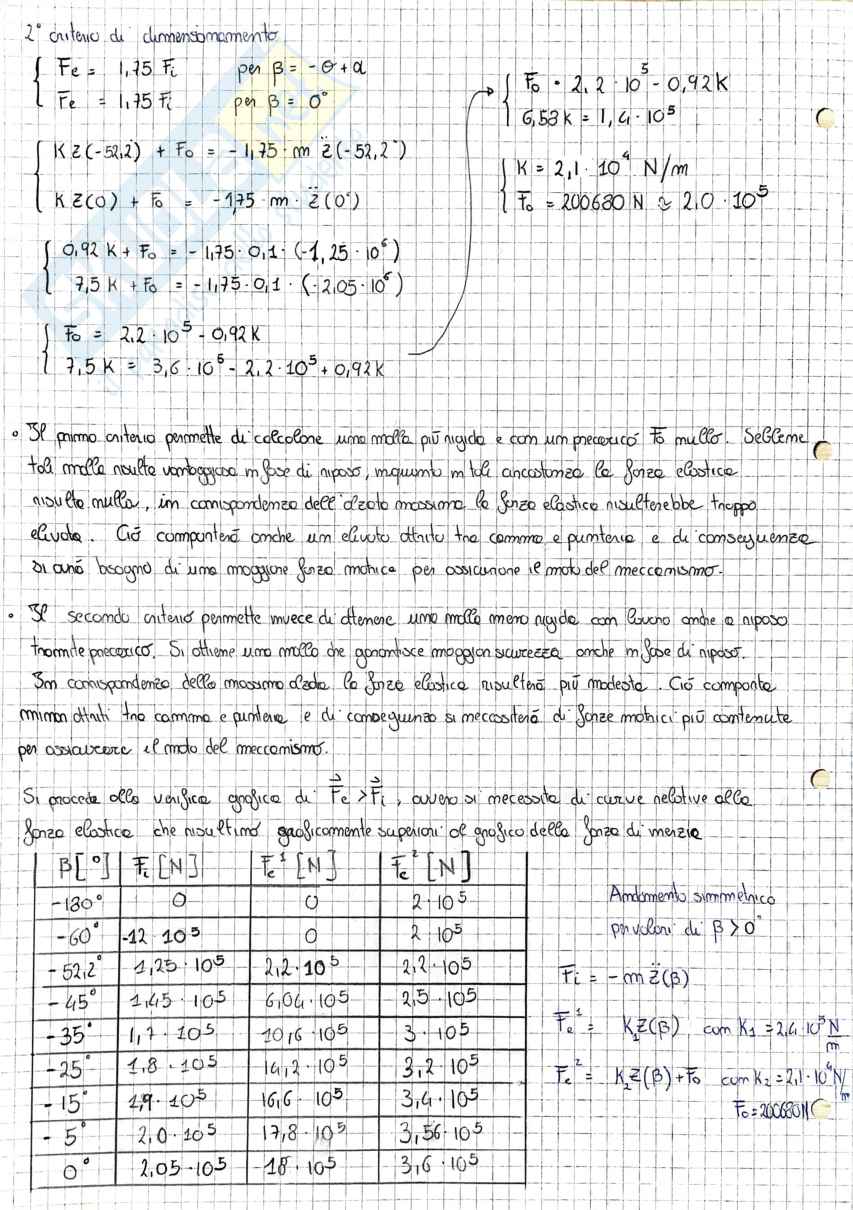 2° criterio di dimensionamento
Fe = 1,75 Fi per β = -θ+α
Fe = 1,75 Fi per β = 0°
K z(-52,2) + F₀ = -1,75 · m z̈(-52,2°)
K z(0) + F₀ = -1,75 · m · z̈(0°)
0,92 K + F₀ = -1,75 · 0,1 · (-1,25 · 10⁶)
7,5 K + F₀ = -1,75 · 0,1 · (-2,05 · 10⁶)
F₀ = 2,2 · 10⁵ - 0,92 K
7,5 K = 3,6 · 10⁵ - 2,2 · 10⁵ + 0,92 K
F₀ = 2,2 · 10⁵ - 0,92 K
6,58 K = 1,4 · 10⁵
K = 2,1 · 10⁴ N/m
F₀ = 200680 N ≈ 2,0 · 10⁵
• Il primo criterio permette di calcolare una molla più rigida e con un precarico F₀ nullo. Sebbene
tale molla risulta vantaggiosa in fase di riposo, inquanto in tali circostanze la forza elastica
risulta nulla, in corrispondenza dell'alzata massima la forza elastica risulterebbe troppo
elevata. Ciò comporterà anche un elevato attrito tra camma e punteria e di conseguenza
si avrà bisogno di una maggiore forza motrice per assicurare il moto del meccanismo.
• Il secondo criterio permette invece di ottenere una molla meno rigida con lavoro anche a riposo
tramite precarico. Si ottiene una molla che garantisce maggior sicurezza anche in fase di riposo.
In corrispondenza della massima alzata la forza elastica risulterà più modesta. Ciò comporta
minori attriti tra camma e punteria e di conseguenza si necessiterà di forze motrici più contenute
per assicurare il moto del meccanismo.
Si procede alla verifica grafica di F⃗e > F⃗i, ovvero si necessita di curve relative alla
forza elastica che risultino graficamente superiori al grafico della forza di inerzia
β [°] Fi [N] Fe¹ [N] Fe² [N]
-180° 0 0 2 · 10⁵
-60° -12 · 10⁵ 0 2 · 10⁵
-52,2° 1,25 · 10⁵ 2,2 · 10⁵ 2,2 · 10⁵
-45° 1,45 · 10⁵ 6,04 · 10⁵ 2,5 · 10⁵
-35° 1,7 · 10⁵ 10,6 · 10⁵ 3 · 10⁵
-25° 1,8 · 10⁵ 14,2 · 10⁵ 3,2 · 10⁵
-15° 1,9 · 10⁵ 16,6 · 10⁵ 3,4 · 10⁵
-5° 2,0 · 10⁵ 17,8 · 10⁵ 3,56 · 10⁵
0° 2,05 · 10⁵ 18 · 10⁵ 3,6 · 10⁵
Andamento simmetrico
per valori di β > 0°
Fi = -m z̈(β)
Fe¹ = K₁z(β) con K₁ = 2,4 · 10⁵ N/m
Fe² = K₂z(β) + F₀ con K₂ = 2,1 · 10⁴ N/m
F₀ = 200680 N